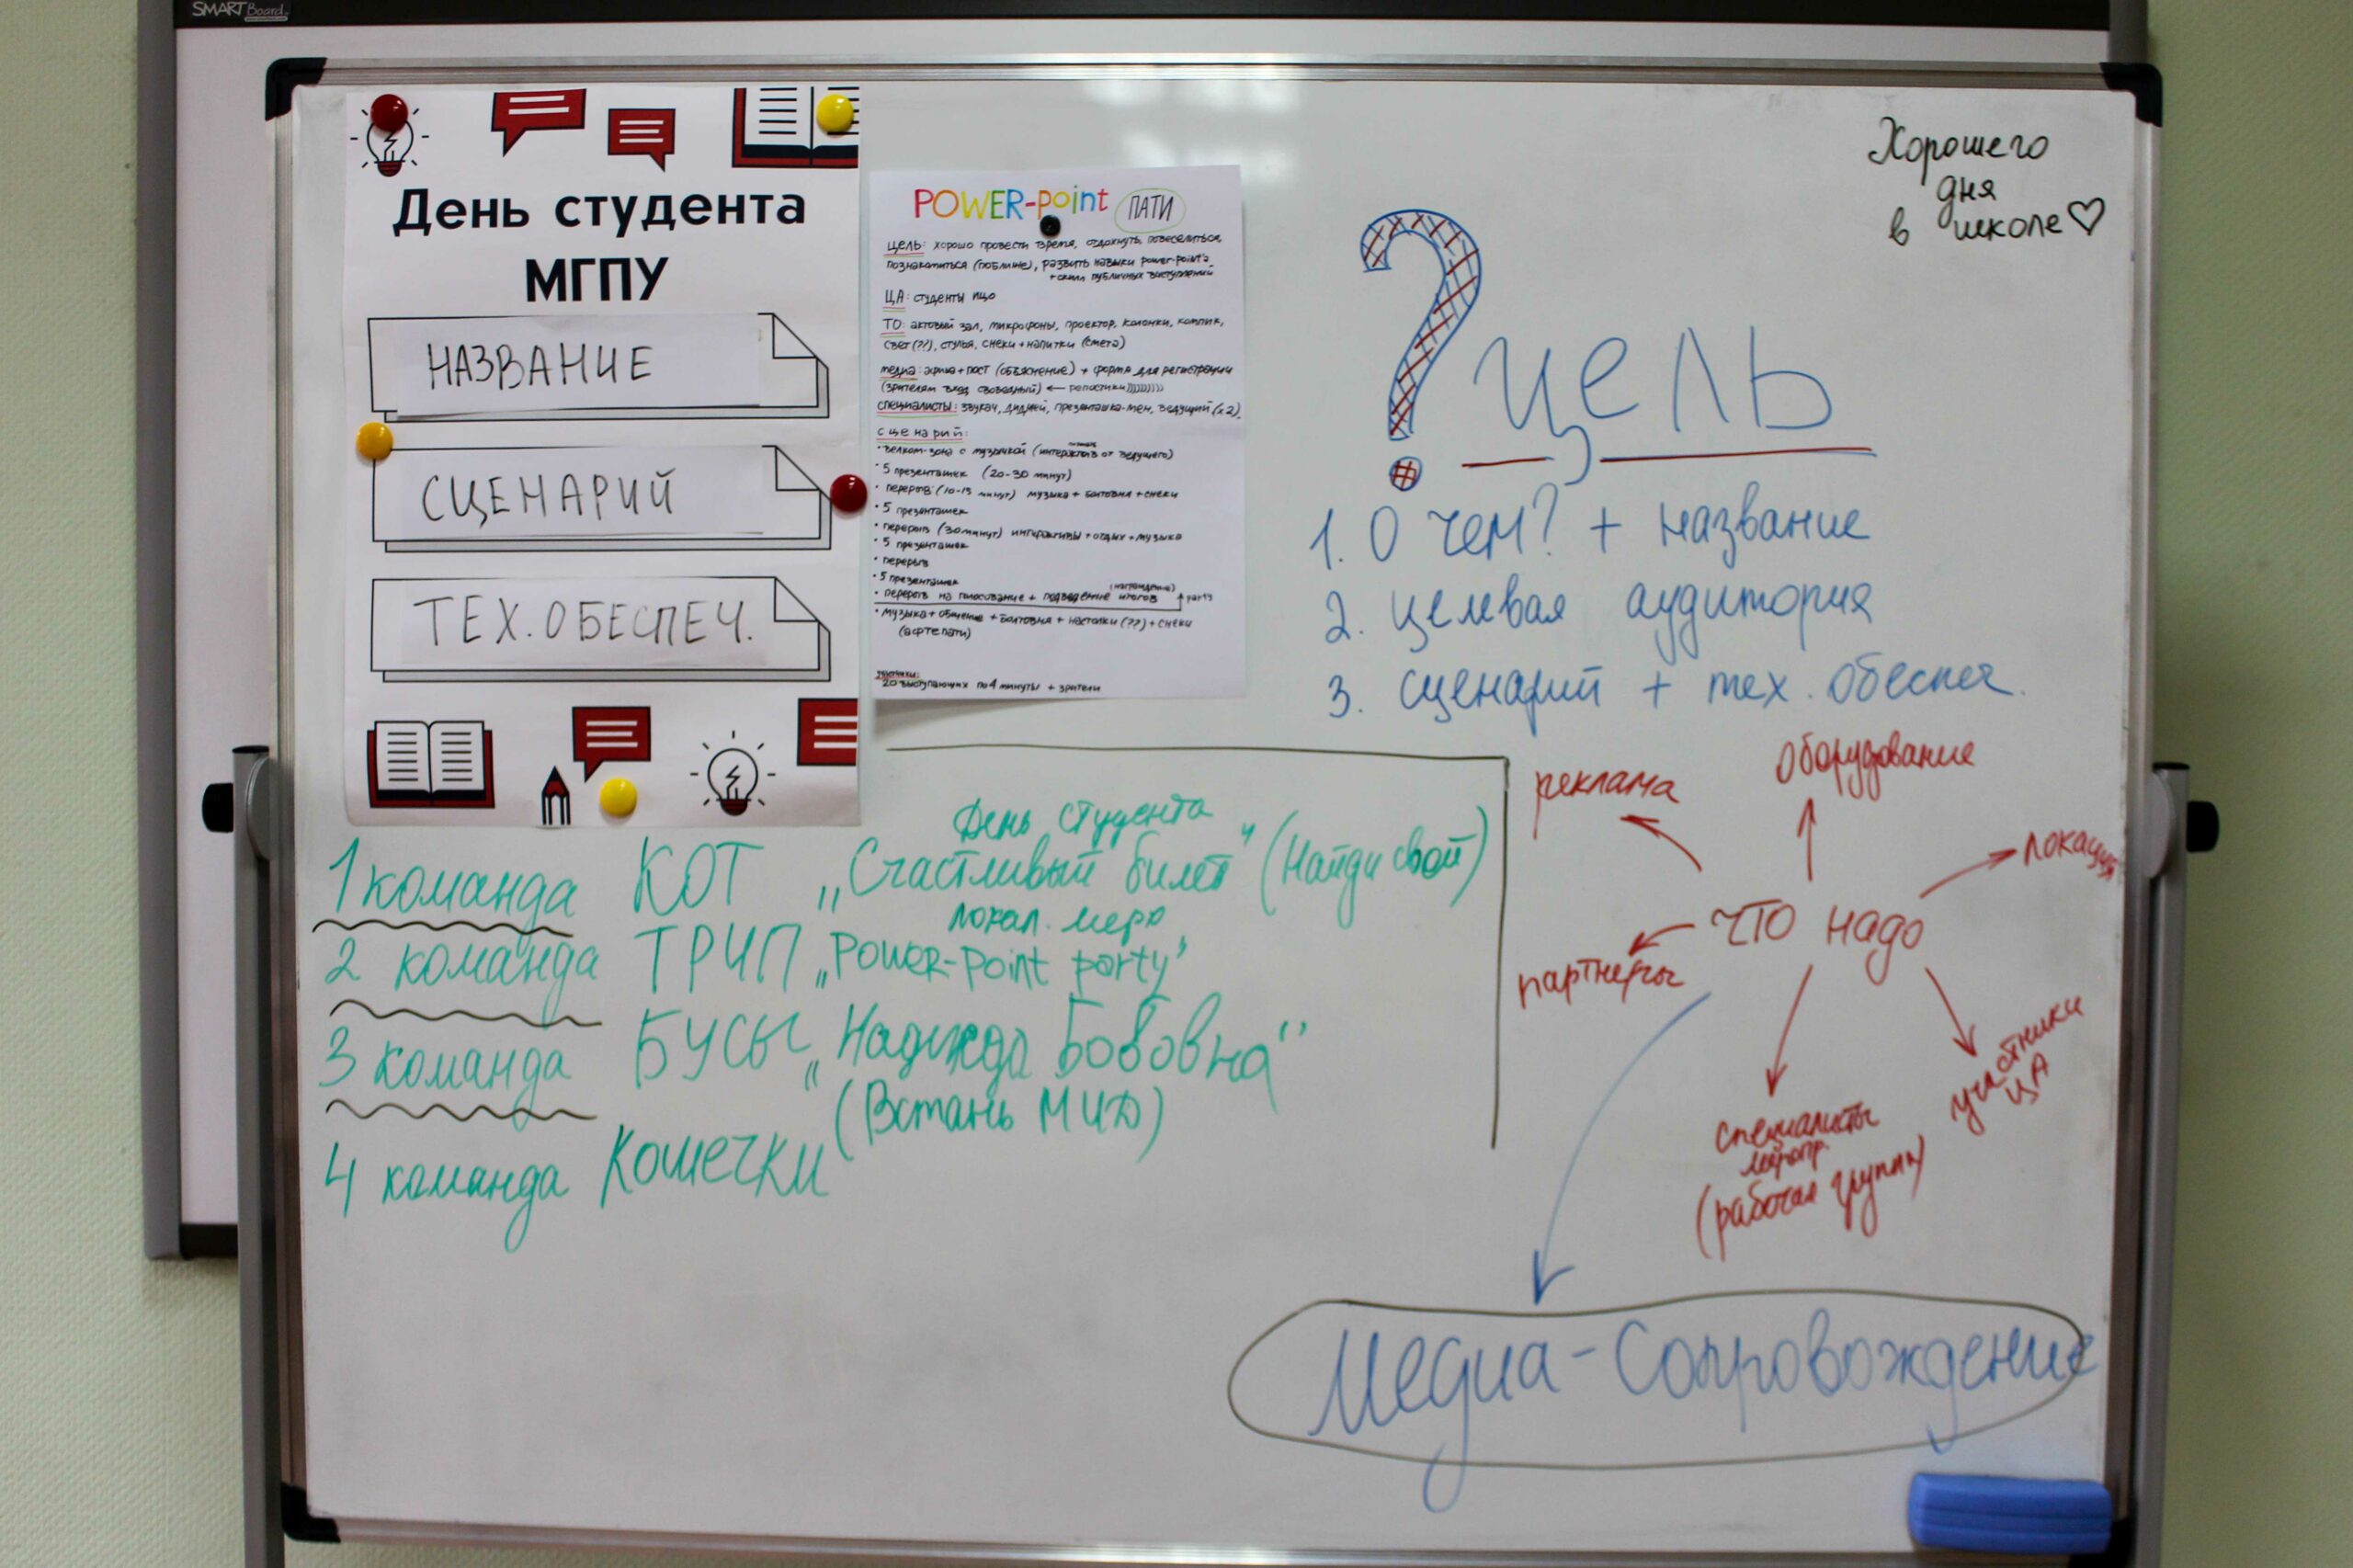 SMART Board
День студента
МГПУ
НАЗВАНИЕ
СЦЕНАРИЙ
ТЕХ. ОБЕСПЕЧ.
POWER-Point ПАТИ
Цель: хорошо провести время, отдохнуть, повеселиться,
познакомиться (поближе), развить навыки power-point'a
+ скилл публичных выступлений
ЦА: студенты ИЦО
ТО: актовый зал, микрофоны, проектор, колонки, компик,
свет (??), стулья, снеки + напитки (смета)
медиа: афиша + пост (объяснение) + форма для регистрации
(зрителям вход свободный) ← репостики)))))))))
специалисты: звукач, диджей, презенташка-мен, ведущий (х2).
сценарий:
• велком-зона с музычкой (интерактив от ведущего)
• 5 презенташек (20-30 минут)
• перерыв (10-15 минут) музыка + болтовня + снеки
• 5 презенташек
• перерыв (30 минут) интерактивы + отдых + музыка
• 5 презенташек
• перерыв
• 5 презенташек
(награждение)
• перерыв на голосование + подведение итогов ↑ party
• музыка + общение + болтовня + настолки (??) + снеки
(афтепати)
20 выступающих по 4 минуты + зрители
Хорошего
дня
в школе ♡
? цель
1. О чем? + название
2. целевая аудитория
3. сценарий + тех. обеспеч.
День студента
1 команда КОТ „Счастливый билет" (Найди свой)
локал. меро
2 команда ТРИП „Power-Point party"
3 команда БУСЫ „Надежда Бобовна"
(Встань МИД)
4 команда Кошечки
реклама
оборудование
локация
что надо
партнеры
участники
ЦА
специалисты
меропр.
(рабочая группа)
Медиа-Сопровождение